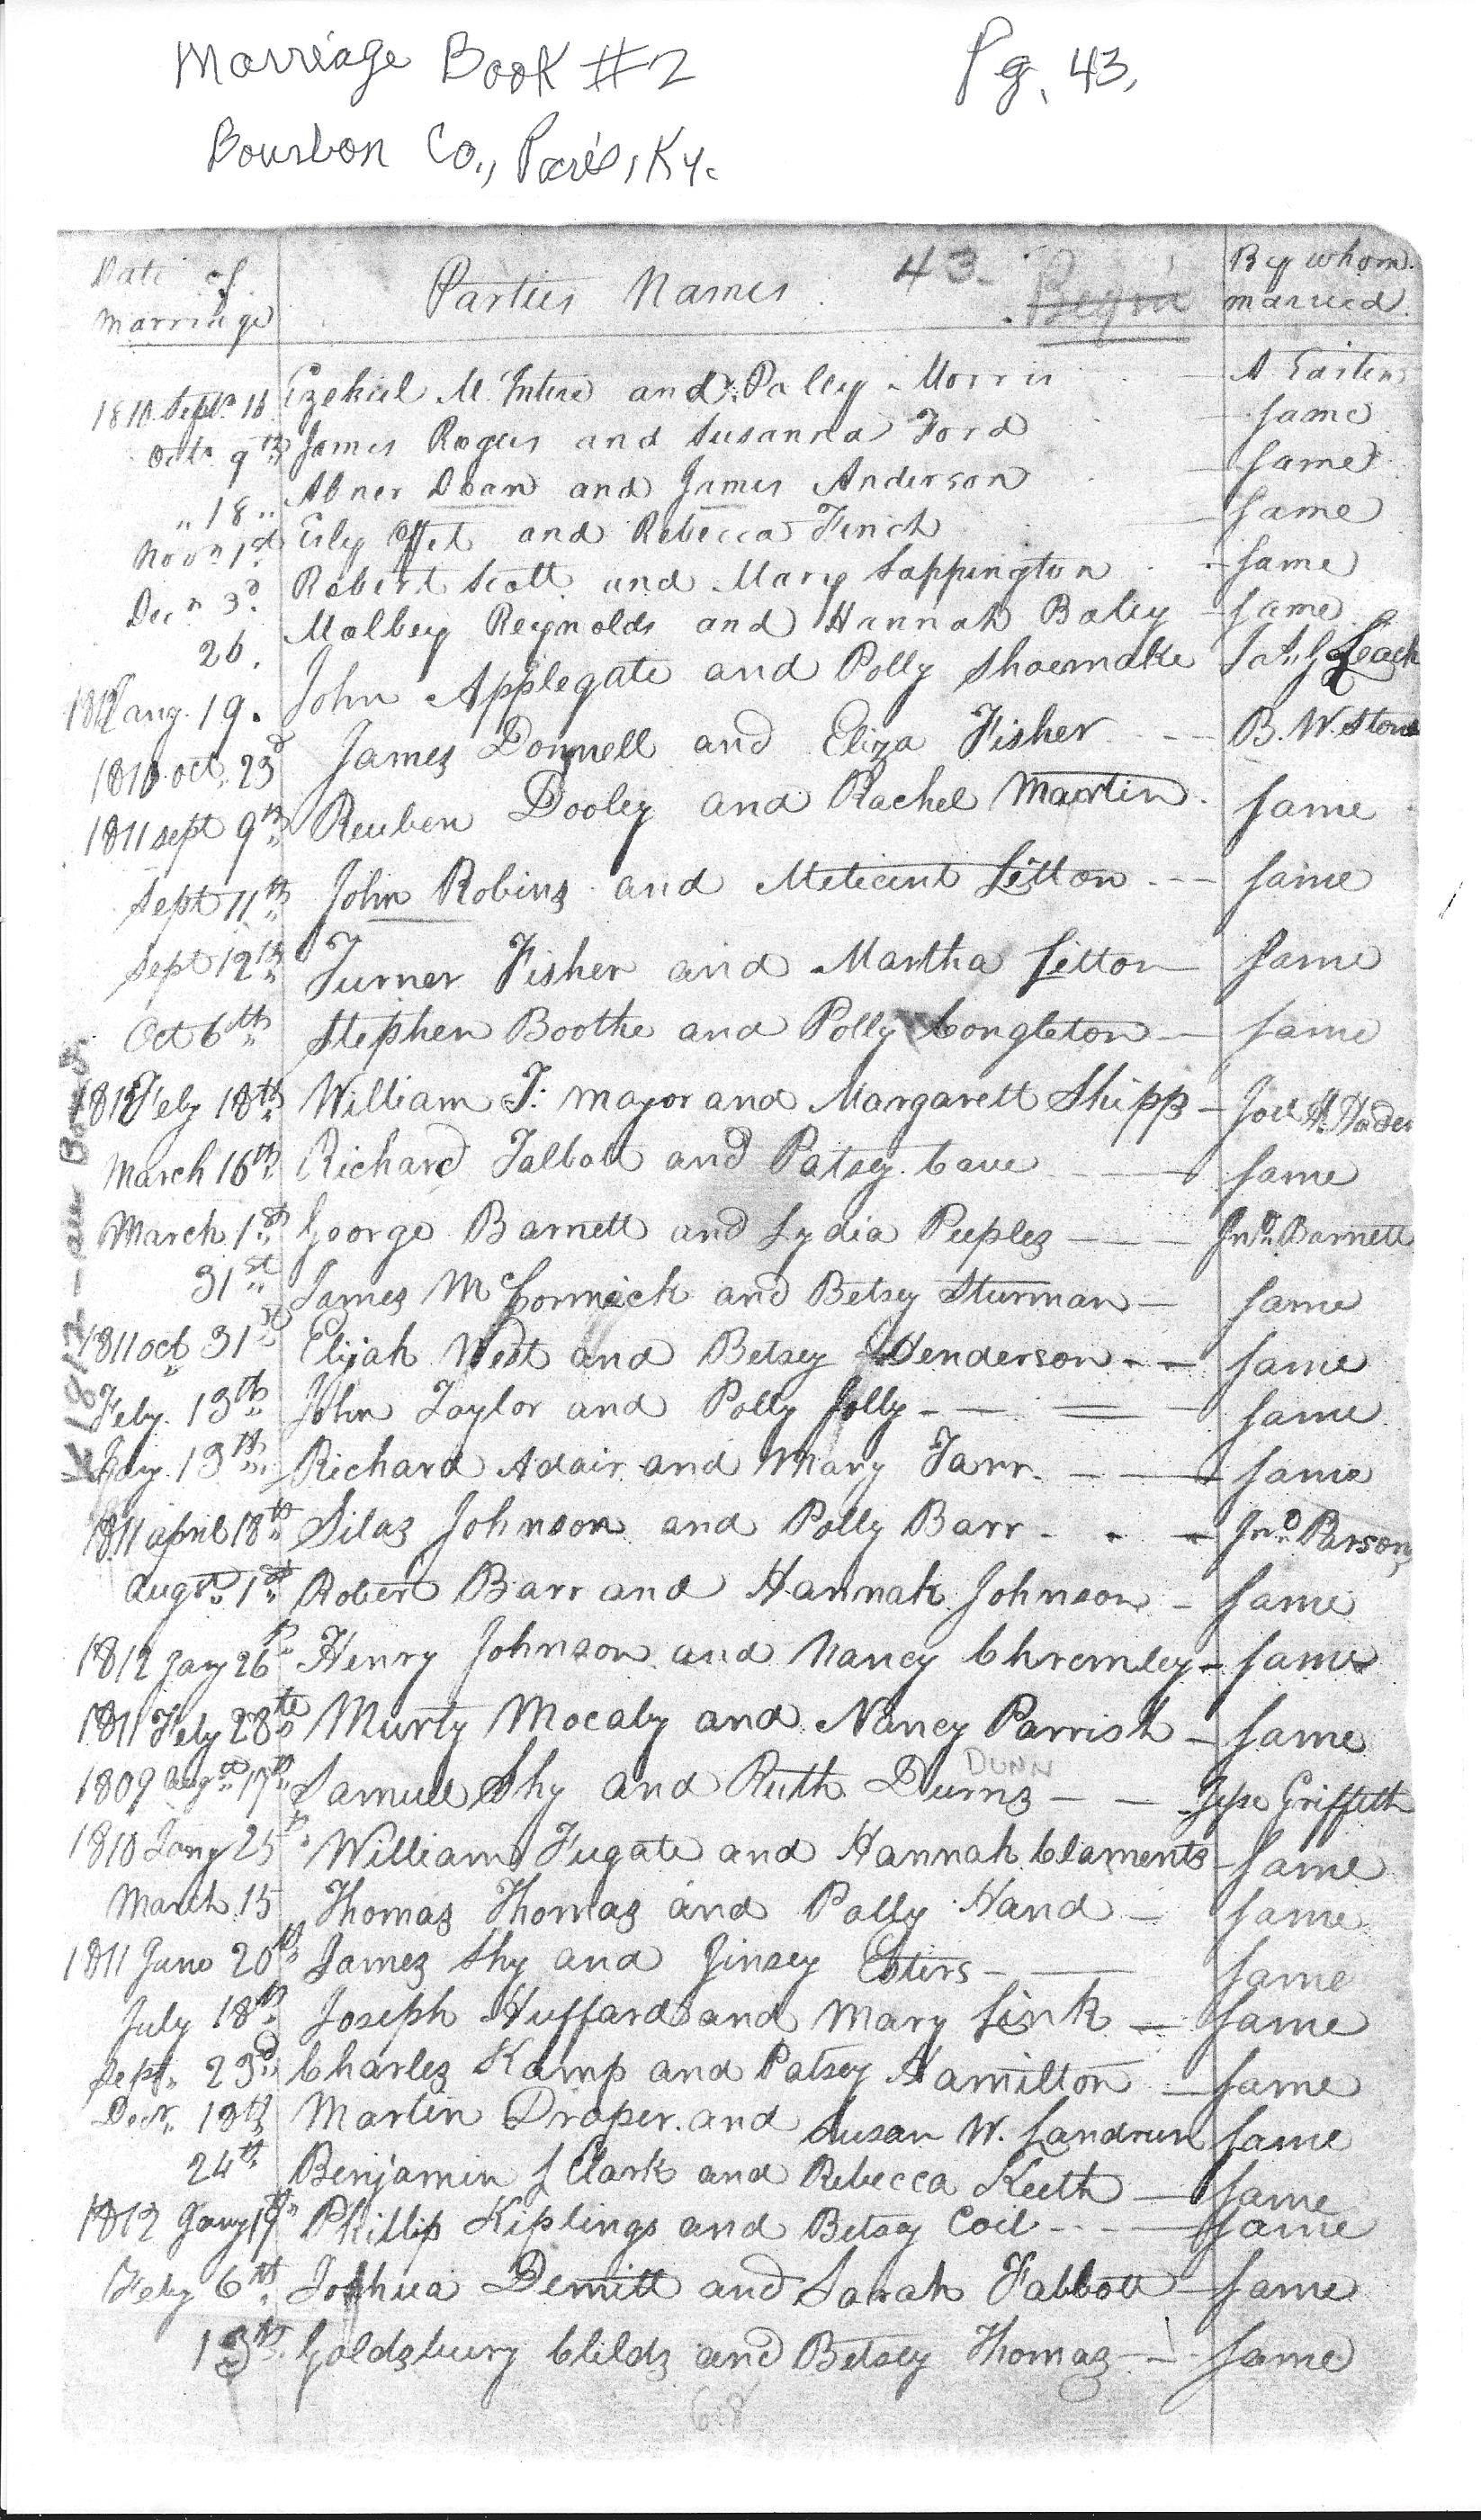 Marriage Book #2 Pg. 43,
Bourbon Co., Paris, Ky.
Date of Marriage Parties Names 43. By whom married.
1810 Septr 16 Ezekiel McIntire and Polley Morris A Easten
Octr 9th James Rogers and Susanna Ford same
" 18 " Abner Doan and James Anderson same
Novr 1st Erly and Rebecca Finch same
Decr 3d Robert Scott and Mary Sappington same
26. Malbey Reynolds and Hannah Baley same
aug. 19. John Applegate and Polly Shoemake Leach
1810 oct. 23d James Donnell and Eliza Fisher B. W. Stone
1811 sept 9th Reuben Dooley and Rachel Martin same
Sept 11th John Robins and Meticent Litton same
Sept 12th Turner Fisher and Martha Litton same
Oct 6th Stephen Boothe and Polly Congleton same
1812 Feby 18th William T. Major and Margarett Shipp
March 16th Richard Talbott and Patsey Cave same
March 1st George Barnett and Lydia Peeples Jno. Barnett
31st James McCormick and Betsey Sturman same
1811 oct 31st Elijah West and Betsey Henderson same
Feby. 13th John Taylor and Polly Jolly same
13th Richard Adair and Mary Tarr same
1811 april 18th Silas Johnson and Polly Barr Jno Parsons
augst 1st Robert Barr and Hannah Johnson same
1812 Jany 26th Henry Johnson and Nancy Chremley same
1811 Feby 28th Murty Mocaby and Nancy Parrish same
DUNN
1809 augst 17th Samuel Shy and Ruth Durns Jesse Griffith
1810 Jany 25th William Fugate and Hannah Claments same
March 15 Thomas Thomas and Polly Hand same
1811 June 20th James Shy and Jinsey Esters same
July 18th Joseph Huffard and Mary Link same
Sept. 23d Charles Kamp and Patsey Hamilton same
Decr. 19th Martin Draper and Susan W. Landrum same
24th Benjamin J Clark and Rebecca Keeth same
1812 Jany 19th Phillip Kiplings and Betsey Coil same
Feby 6th Joshua Demitt and Sarah Talbott same
13th Goldsbury Childs and Betsey Thomas same